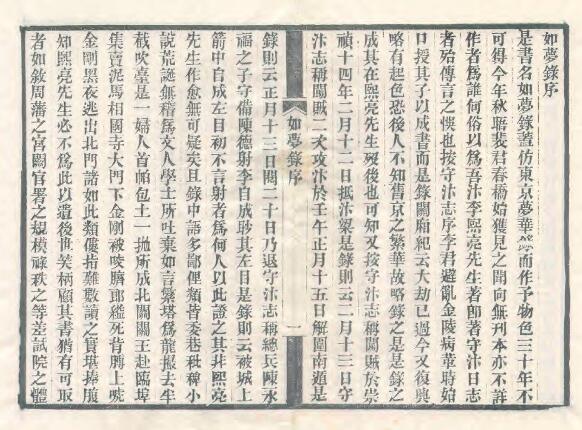 如夢錄序
是書名如夢錄蓋仿東京夢華錄而作予物色三十年不
可得今年秋晤裴君春橋始獲見之聞向無刊本亦不詳
作者爲誰何俗以爲吾汴李熙亮先生著卽著守汴日志
者殆傳言之悞也按守汴志序李君避亂金陵病革時始
口授其子以成書而是錄關廂紀云大劫已過今又復興
略有起色恐後人不知舊京之繁華故略錄之是是錄之
成其在熙亮先生殁後也可知又按守汴志稱闖賊於崇
禎十四年二月十二日抵汴梁是錄則云二月十三日守
汴志稱闖賊二次攻汴於壬午正月十五日解圍南遁是
如夢錄序
一
錄則云正月十三日閏二十日乃退守汴志稱總兵陳永
福之子守備陳德射李自成眇其左目是錄則云被城上
箭中自成左目初不言射者爲何人以此證之其非熙亮
先生作愈無可疑矣且錄中語多鄙俚類皆委巷秕稗小
說荒誕無稽爲文人學士所吐棄如言繁塔爲龍撮去半
截吹臺是一婦人首帕包土一抛所成北關關王赴臨埠
集賣泥馬相國寺大門下金剛被咬臍郎縊死背膊上唬
金剛黑夜逃出北門諸如此類僂指難數讀之實堪捧腹
知熙亮先生必不爲此以遺後世笑柄顧其書猶有可取
者如敘周藩之宮闕官署之規模祿秩之等差試院之體